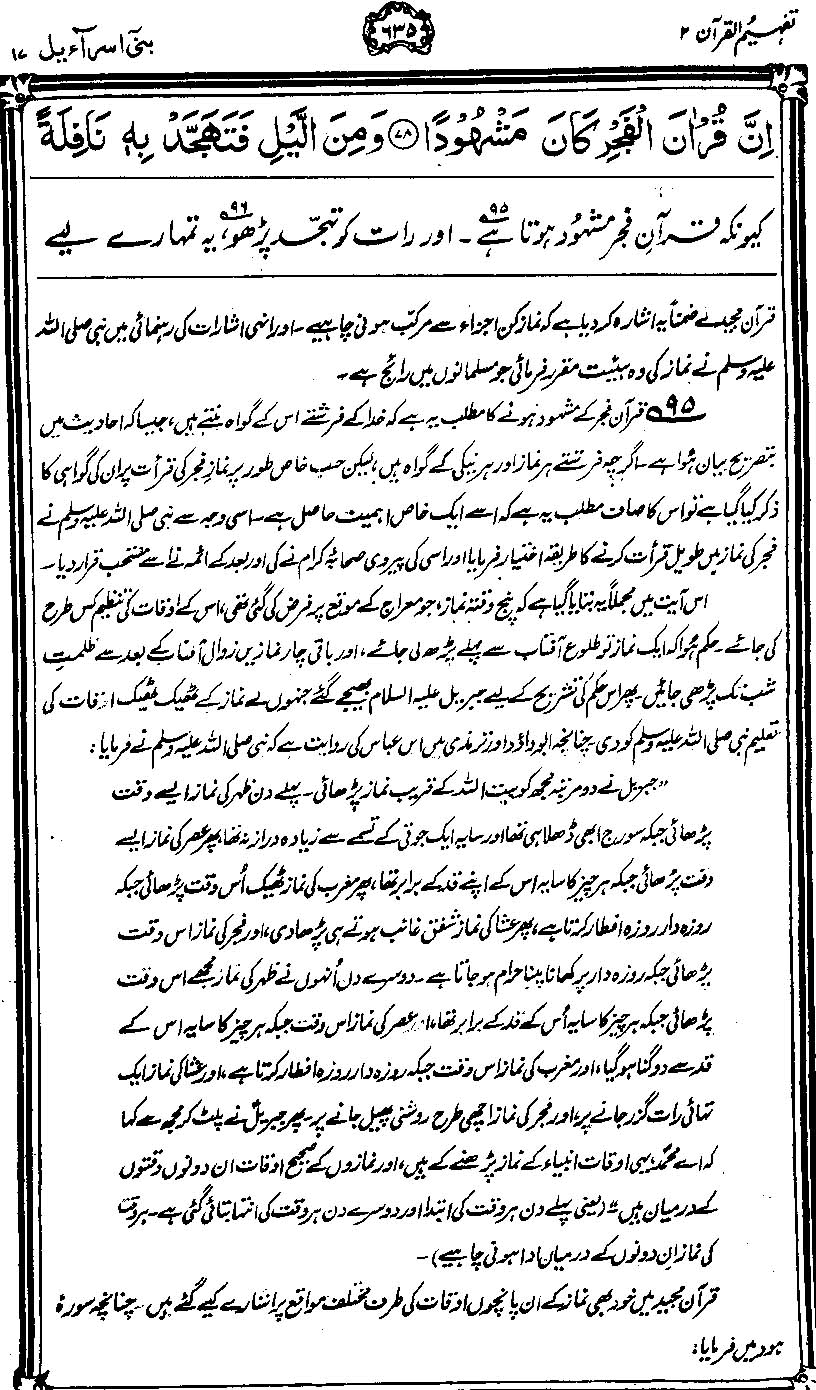 تفہیم القرآن ۲
۶۳۵
بنی اسرآءیل ۱۷
اِنَّ قُرْاٰنَ الْفَجْرِ كَانَ مَشْهُوْدًا ﴿۷۸﴾ وَمِنَ الَّيْلِ فَتَهَجَّدْ بِهٖ نَافِلَةً
کیونکہ قرآنِ فجر مشہود ہوتا ہے۹۵۔ اور رات کو تہجّد پڑھو۹۶، یہ تمہارے لیے
قرآن مجید نے ضمناً یہ اشارہ کر دیا ہے کہ نماز کن اجزاء سے مرکّب ہونی چاہیے۔ اور انہی اشارات کی رہنمائی میں نبی صلی اللہ
علیہ وسلم نے نماز کی وہ ہیئت مقرر فرمائی جو مسلمانوں میں رائج ہے۔
۹۵ قرآن فجر کے مشہود ہونے کا مطلب یہ ہے کہ خدا کے فرشتے اس کے گواہ بنتے ہیں، جیسا کہ احادیث میں
بتصریح بیان ہوا ہے۔ اگرچہ فرشتے ہر نماز اور ہر نیکی کے گواہ ہیں، لیکن جب خاص طور پر نماز فجر کی قرأت پر ان کی گواہی کا
ذکر کیا گیا ہے تو اس کا صاف مطلب یہ ہے کہ اسے ایک خاص اہمیت حاصل ہے۔ اسی وجہ سے نبی صلی اللہ علیہ وسلم نے
فجر کی نماز میں طویل قرأت کرنے کا طریقہ اختیار فرمایا اور اسی کی پیروی صحابۂ کرام نے کی اور بعد کے ائمہ نے اسے مستحب قرار دیا۔
اس آیت میں مجملاً یہ بتایا گیا ہے کہ پنج وقتہ نماز، جو معراج کے موقع پر فرض کی گئی تھی، اس کے اوقات کی تنظیم کس طرح
کی جائے۔ حکم ہوا کہ ایک نماز تو طلوع آفتاب سے پہلے پڑھ لی جائے، اور باقی چار نمازیں زوال آفتاب کے بعد سے ظلمتِ
شب تک پڑھی جائیں۔ پھر اس حکم کی تشریح کے لیے جبریل علیہ السلام بھیجے گئے جنہوں نے نماز کے ٹھیک ٹھیک اوقات کی
تعلیم نبی صلی اللہ علیہ وسلم کو دی۔ چنانچہ ابوداؤد اور ترمذی میں ابن عباس کی روایت ہے کہ نبی صلی اللہ علیہ وسلم نے فرمایا:
"جبریل نے دو مرتبہ مجھ کو بیت اللہ کے قریب نماز پڑھائی۔ پہلے دن ظہر کی نماز ایسے وقت
پڑھائی جبکہ سورج ابھی ڈھلا ہی تھا اور سایہ ایک جوتی کے تسمے سے زیادہ دراز نہ تھا، پھر عصر کی نماز ایسے
وقت پڑھائی جبکہ ہر چیز کا سایہ اس کے اپنے قد کے برابر تھا، پھر مغرب کی نماز ٹھیک اُس وقت پڑھائی جبکہ
روزہ دار روزہ افطار کرتا ہے، پھر عشا کی نماز شفق غائب ہوتے ہی پڑھا دی، اور فجر کی نماز اس وقت
پڑھائی جبکہ روزہ دار پر کھانا پینا حرام ہو جاتا ہے۔ دوسرے دن اُنہوں نے ظہر کی نماز مجھے اس وقت
پڑھائی جبکہ ہر چیز کا سایہ اُس کے قد کے برابر تھا، اور عصر کی نماز اس وقت جبکہ ہر چیز کا سایہ اس کے
قد سے دوگنا ہو گیا، اور مغرب کی نماز اس وقت جبکہ روزہ دار روزہ افطار کرتا ہے، اور عشا کی نماز ایک
تہائی رات گزر جانے پر، اور فجر کی نماز اچھی طرح روشنی پھیل جانے پر۔ پھر جبریلؑ نے پلٹ کر مجھ سے کہا
کہ اے محمدؐ، یہی اوقات انبیاء کے نماز پڑھنے کے ہیں، اور نمازوں کے صحیح اوقات ان دونوں وقتوں
کے درمیان ہیں" (یعنی پہلے دن ہر وقت کی ابتدا اور دوسرے دن ہر وقت کی انتہا بتائی گئی ہے۔ ہر وقت
کی نماز اِن دونوں کے درمیان ادا ہونی چاہیے)۔
قرآن مجید میں خود بھی نماز کے ان پانچوں اوقات کی طرف مختلف مواقع پر اشارے کیے گئے ہیں۔ چنانچہ سورۂ
ہود میں فرمایا: